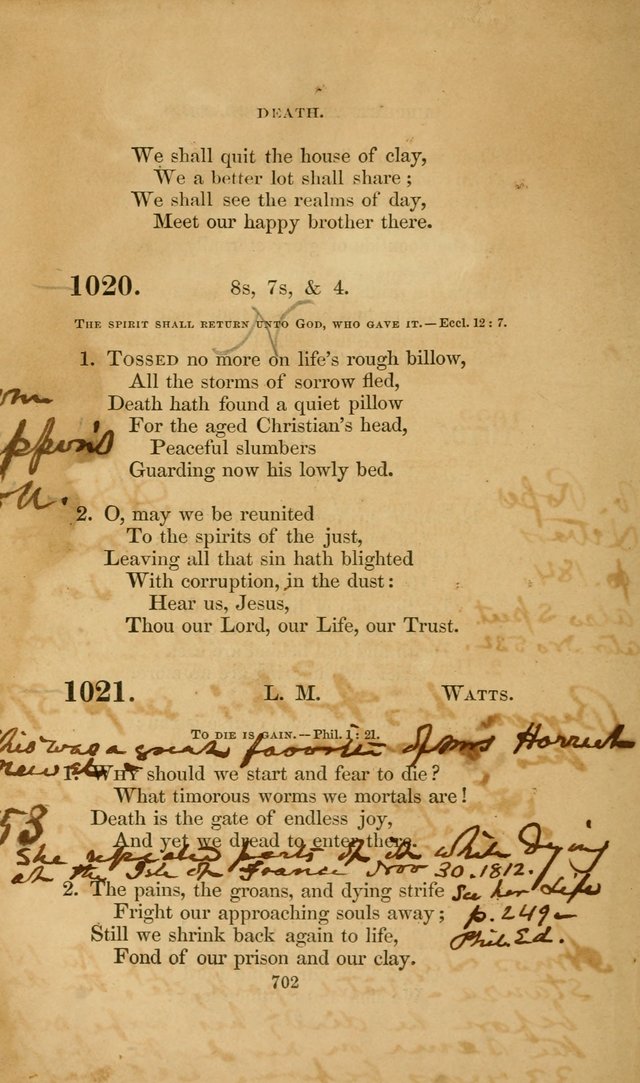 DEATH.
We shall quit the house of clay,
We a better lot shall share;
We shall see the realms of day,
Meet our happy brother there.
1020. 8s, 7s, & 4.
N
The spirit shall return unto God, who gave it.—Eccl. 12: 7.
1. Tossed no more on life's rough billow,
All the storms of sorrow fled,
Death hath found a quiet pillow
For the aged Christian's head,
Peaceful slumbers
Guarding now his lowly bed.
2. O, may we be reunited
To the spirits of the just,
Leaving all that sin hath blighted
With corruption, in the dust:
Hear us, Jesus,
Thou our Lord, our Life, our Trust.
1021. L. M. Watts.
To die is gain.—Phil. 1: 21.
This was a great favorite of Mrs Harriet
Newell
1. Why should we start and fear to die?
What timorous worms we mortals are!
Death is the gate of endless joy,
53
And yet we dread to enter there.
She repeated parts of it while Dying
at the Isle of France Nov 30. 1812.
2. The pains, the groans, and dying strife See her Life
Fright our approaching souls away; p. 249
Still we shrink back again to life, Phil. Ed.
Fond of our prison and our clay.
702